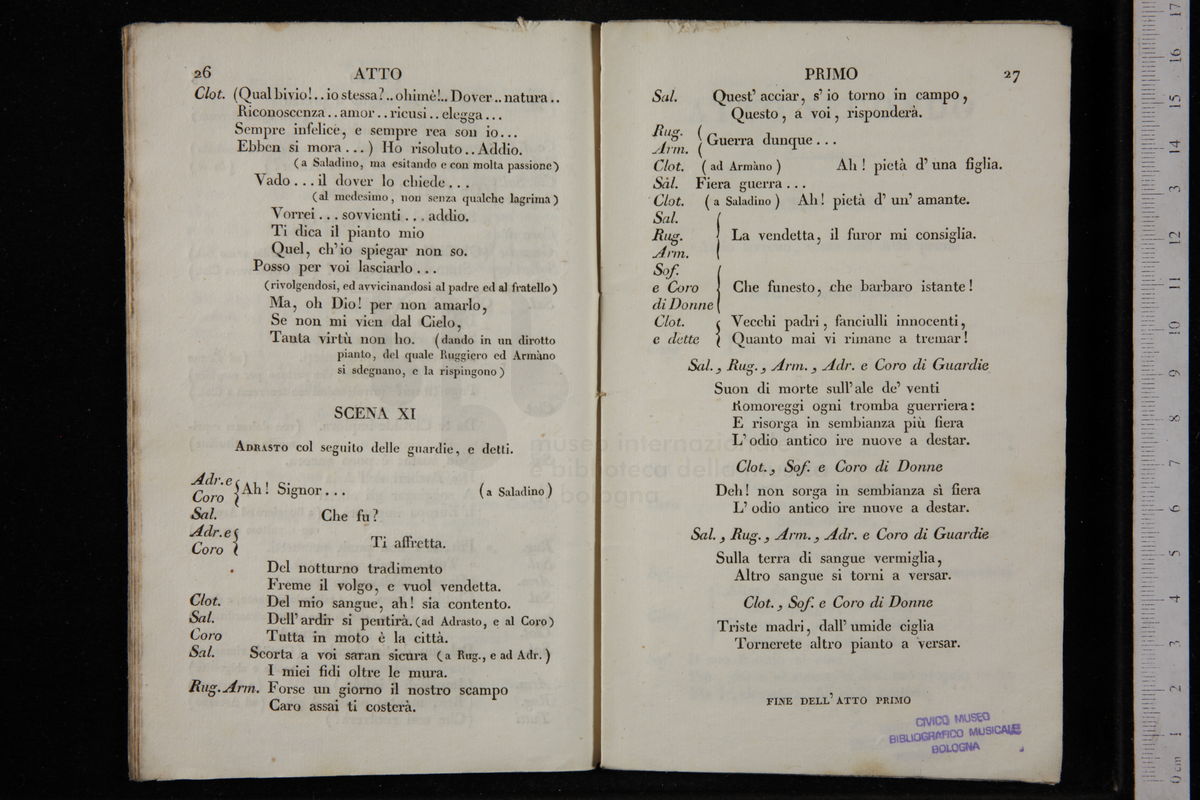 26 ATTO
Clot. (Qual bivio!..io stessa?..ohimè!..Dover..natura..
Riconoscenza..amor..ricusi..elegga...
Sempre infelice, e sempre rea son io...
Ebben si mora...) Ho risoluto..Addio.
(a Saladino, ma esitando e con molta passione)
Vado...il dover lo chiede...
(al medesimo, non senza qualche lagrima)
Vorrei...sovvienti...addio.
Ti dica il pianto mio
Quel, ch'io spiegar non so.
Posso per voi lasciarlo...
(rivolgendosi, ed avvicinandosi al padre ed al fratello)
Ma, oh Dio! per non amarlo,
Se non mi vien dal Cielo,
Tanta virtù non ho. (dando in un dirotto
pianto, del quale Ruggiero ed Armàno
si sdegnano, e la rispingono)
SCENA XI
ADRASTO col seguito delle guardie, e detti.
Adr. e
Coro { Ah! Signor... (a Saladino)
Sal. Che fu?
Adr. e
Coro { Ti affretta.
Del notturno tradimento
Freme il volgo, e vuol vendetta.
Clot. Del mio sangue, ah! sia contento.
Sal. Dell' ardir si pentirà. (ad Adrasto, e al Coro)
Coro Tutta in moto è la città.
Sal. Scorta a voi saran sicura (a Rug., e ad Adr.)
I miei fidi oltre le mura.
Rug. Arm. Forse un giorno il nostro scampo
Caro assai ti costerà.
PRIMO 27
Sal. Quest' acciar, s' io torno in campo,
Questo, a voi, risponderà.
Rug.
Arm. ( Guerra dunque...
Clot. (ad Armàno) Ah! pietà d' una figlia.
Sal. Fiera guerra...
Clot. (a Saladino) Ah! pietà d' un' amante.
Sal.
Rug. La vendetta, il furor mi consiglia.
Arm.
Sof.
e Coro Che funesto, che barbaro istante!
di Donne
Clot. Vecchi padri, fanciulli innocenti,
e dette Quanto mai vi rimane a tremar!
Sal., Rug., Arm., Adr. e Coro di Guardie
Suon di morte sull' ale de' venti
Romoreggi ogni tromba guerriera:
E risorga in sembianza più fiera
L' odio antico ire nuove a destar.
Clot., Sof. e Coro di Donne
Deh! non sorga in sembianza sì fiera
L' odio antico ire nuove a destar.
Sal., Rug., Arm., Adr. e Coro di Guardie
Sulla terra di sangue vermiglia,
Altro sangue si torni a versar.
Clot., Sof. e Coro di Donne
Triste madri, dall' umide ciglia
Tornerete altro pianto a versar.
FINE DELL' ATTO PRIMO
CIVICO MUSEO
BIBLIOGRAFICO MUSICALE
BOLOGNA
museo internazionale
e biblioteca della
bologna
0 cm 1 2 3 4 5 6 7 8 9 10 11 12 13 14 15 16 17